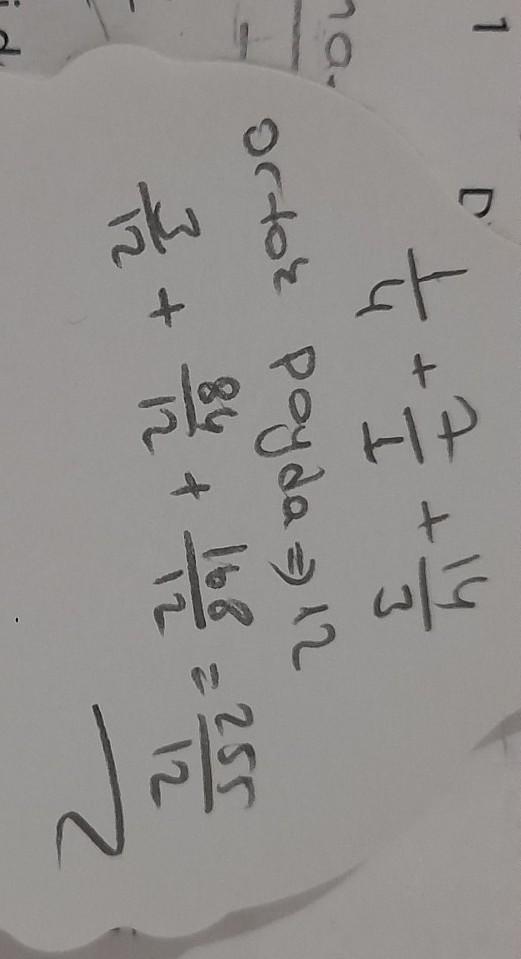 1/4 + 7/1 + 14/3
ortak payda => 12
3/12 + 84/12 + 168/12 = 255/12